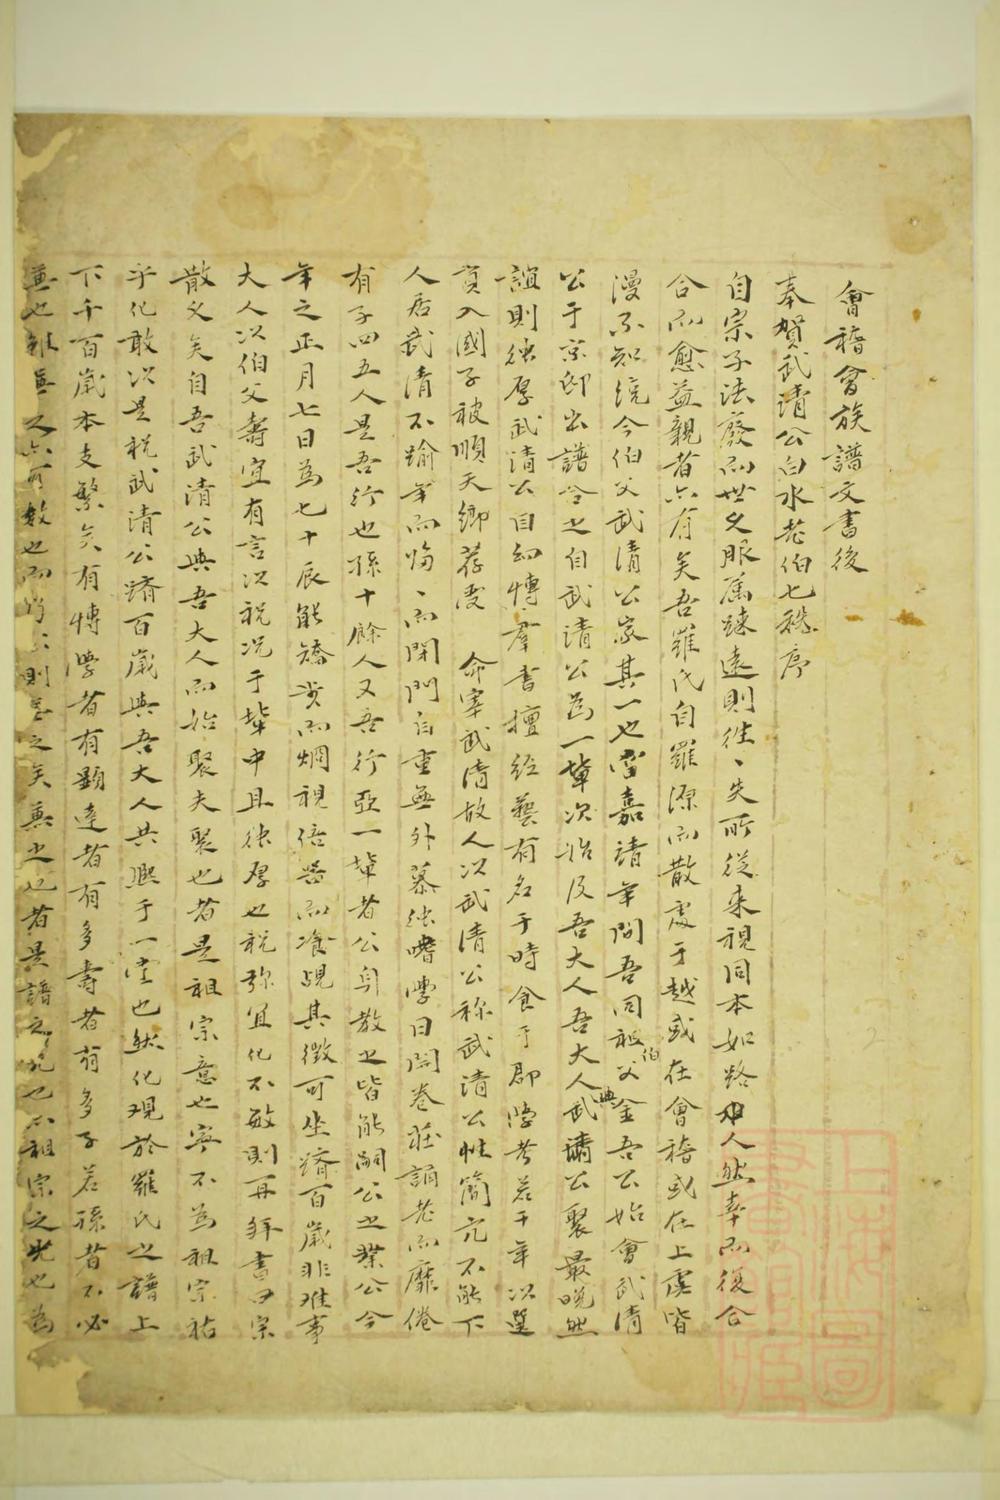 會稽會族譜文書後
奉賀武清公白水老伯七袠序
自宗子法廢而世乂服屬疎遠則往、失所從来視同本如路人然幸而復合
合而愈益親者亦有矣吾羅氏自羅源而散處于越或在會稽或在上虞皆
漫不知統今伯父武清公家其一也當嘉靖年間吾同祖伯父金吾公始會武清
公于京邸出譜合之自武清公為一輩次始及吾大人吾大人與武清公聚最晚然
誼則獨厚武清公自幼博羣書擅經藝有名于時食于郡庠考若干年以選
貢入國子被順天鄉荐受 命宰武清故人以武清公称武清公性簡亢不能下
人居武清不踰年而歸、而閉門自重無外慕独嗜學日開卷莊誦老而靡倦
有子四五人是吾行也孫十餘人又吾行亞一輩者公躬教之皆能嗣公之業公今
年之正月七日為七十辰能矯步而烱視倍啚而飡覘其徵可坐躋百歲非难事
大人以伯父壽宜有言以祝况于輩中且独厚也祝弥宜化不敏則再拜書曰宗
散乂矣自吾武清公與吾大人而始聚夫聚也者是祖宗意也寧不為祖宗祜
乎化敢以是祝武清公躋百歲與吾大人共熙于一堂也然化观於羅氏之譜上
下千百歲本支繁矣有博學者有顯達者有多壽者有多子若孫者不必
兼也雖無之亦可数也而則無之矣兼之也者是譜之光也亦祖宗之光也為